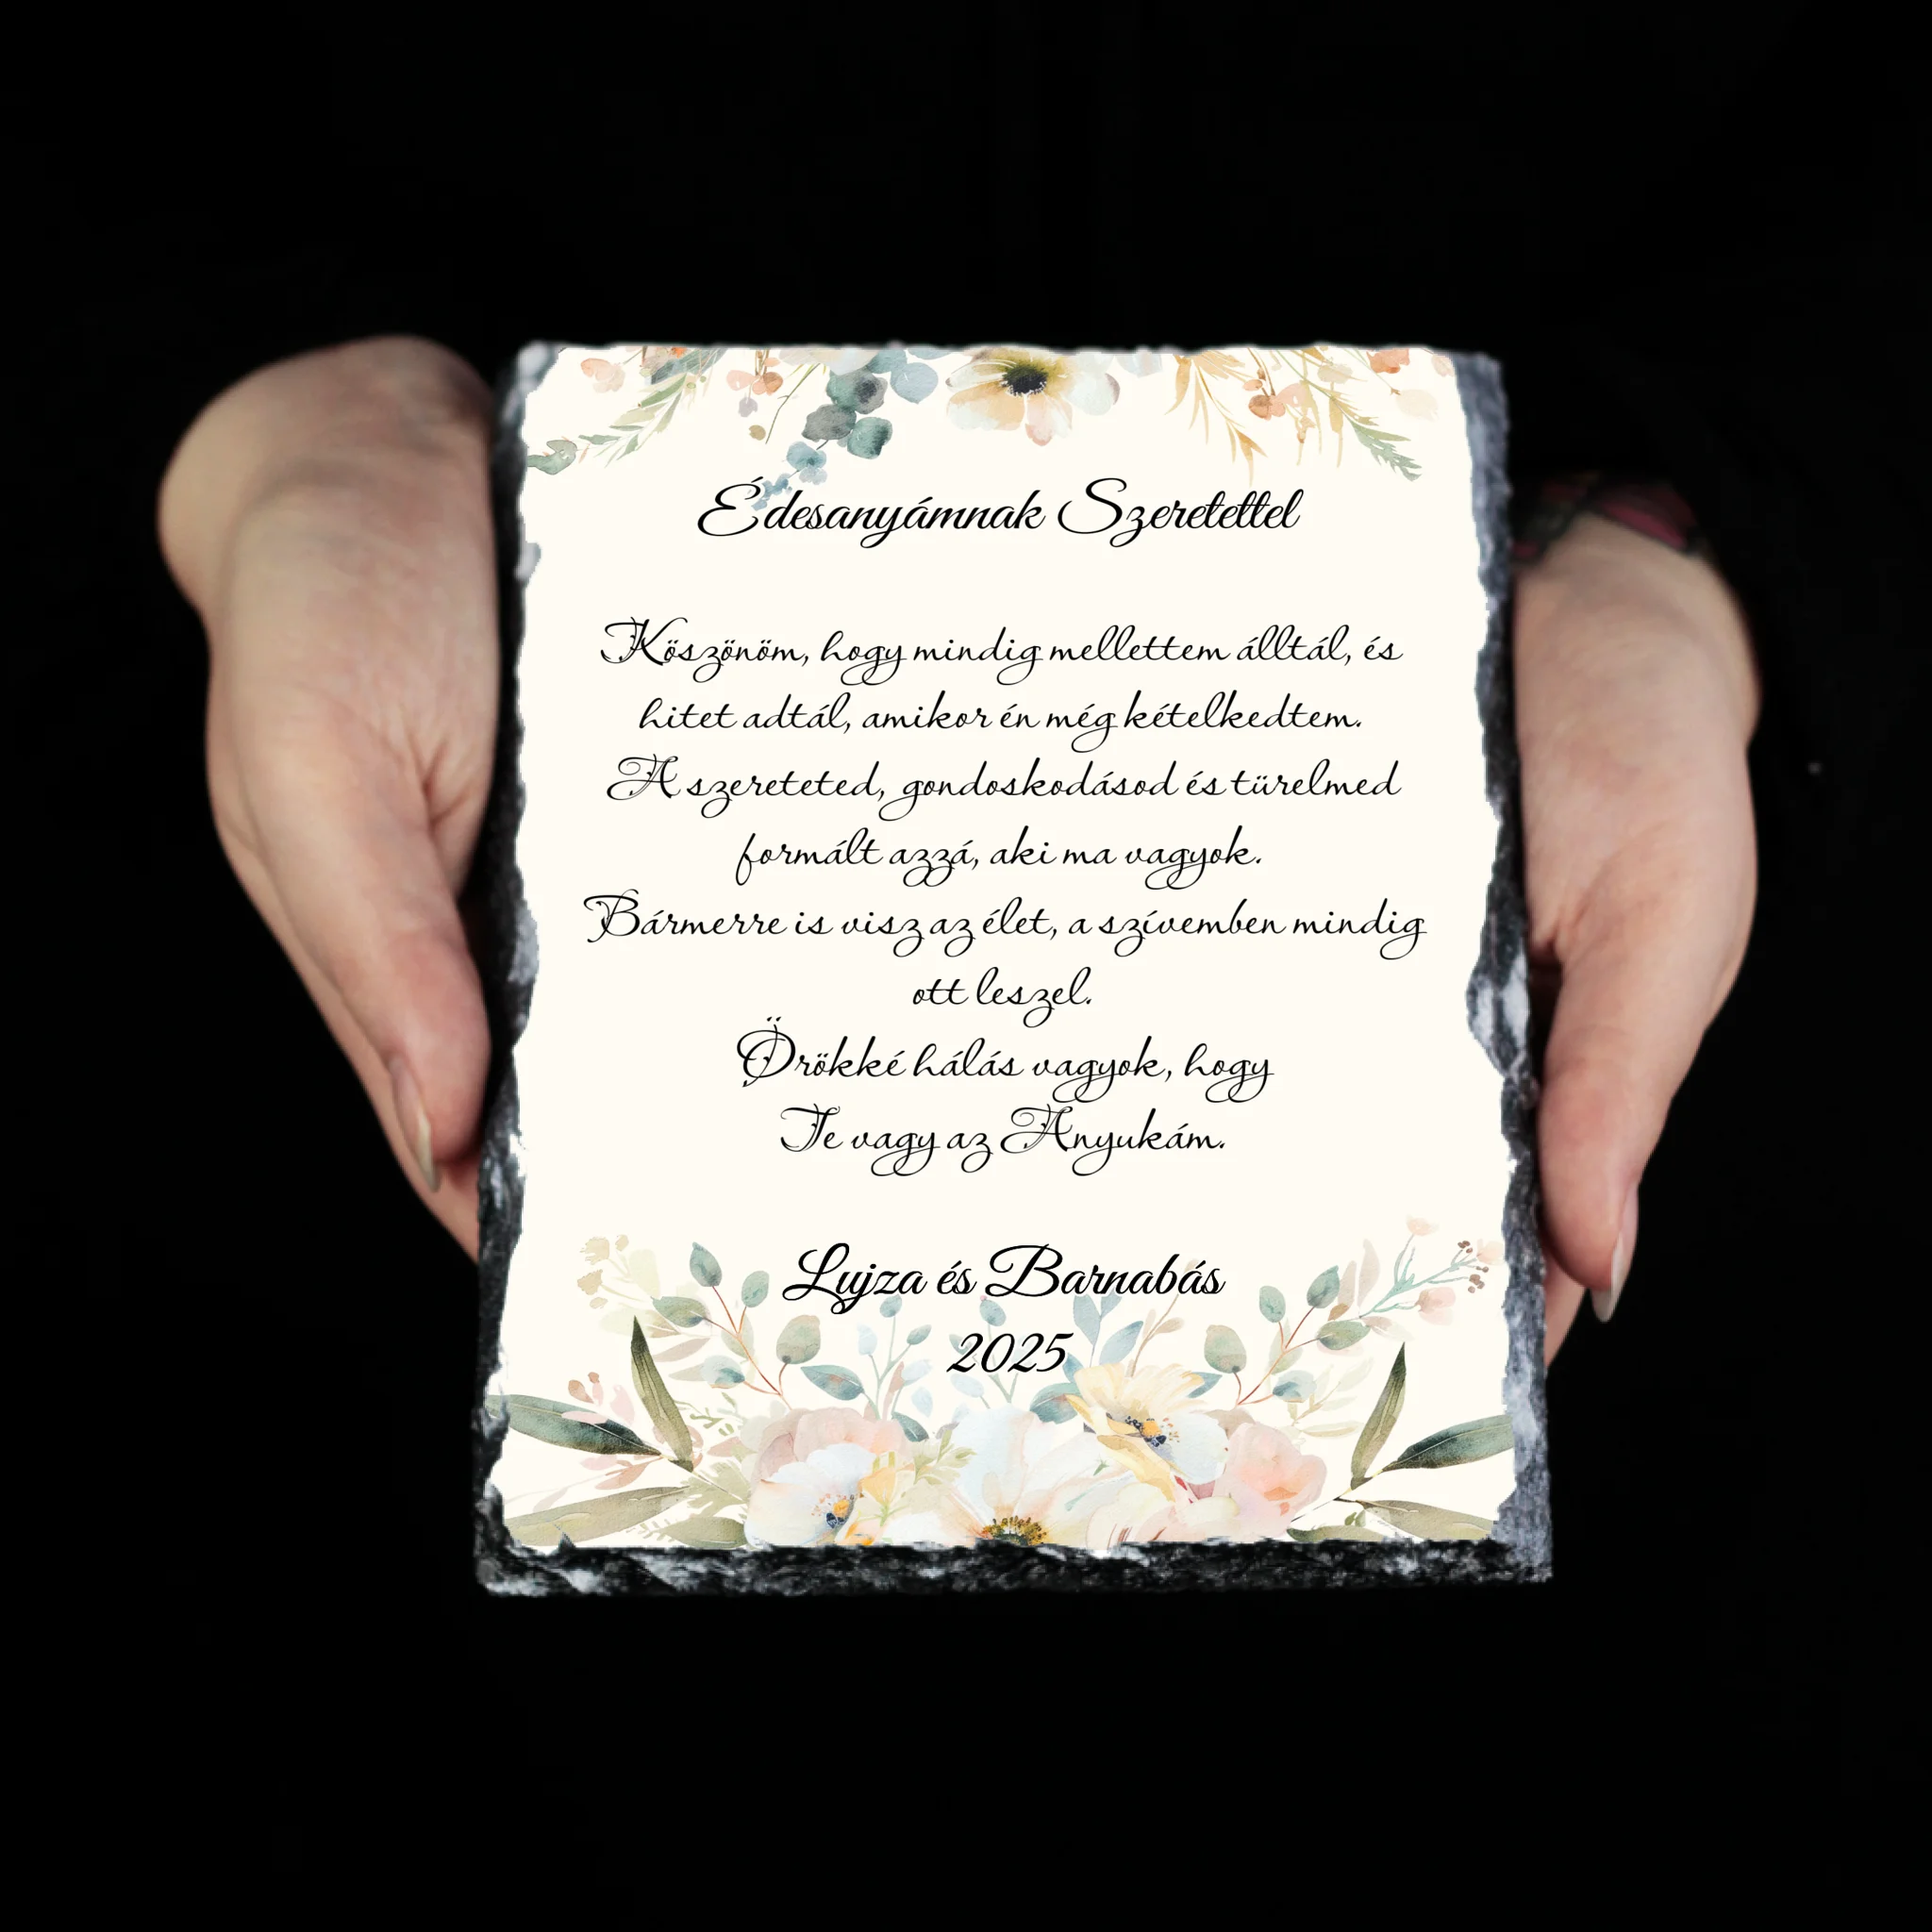 Édesanyámnak Szeretettel
Köszönöm, hogy mindig mellettem álltál, és
hitet adtál, amikor én még kételkedtem.
A szereteted, gondoskodásod és türelmed
formált azzá, aki ma vagyok.
Bármerre is visz az élet, a szívemben mindig
ott leszel.
Örökké hálás vagyok, hogy
Te vagy az Anyukám.
Lujza és Barnabás
2025